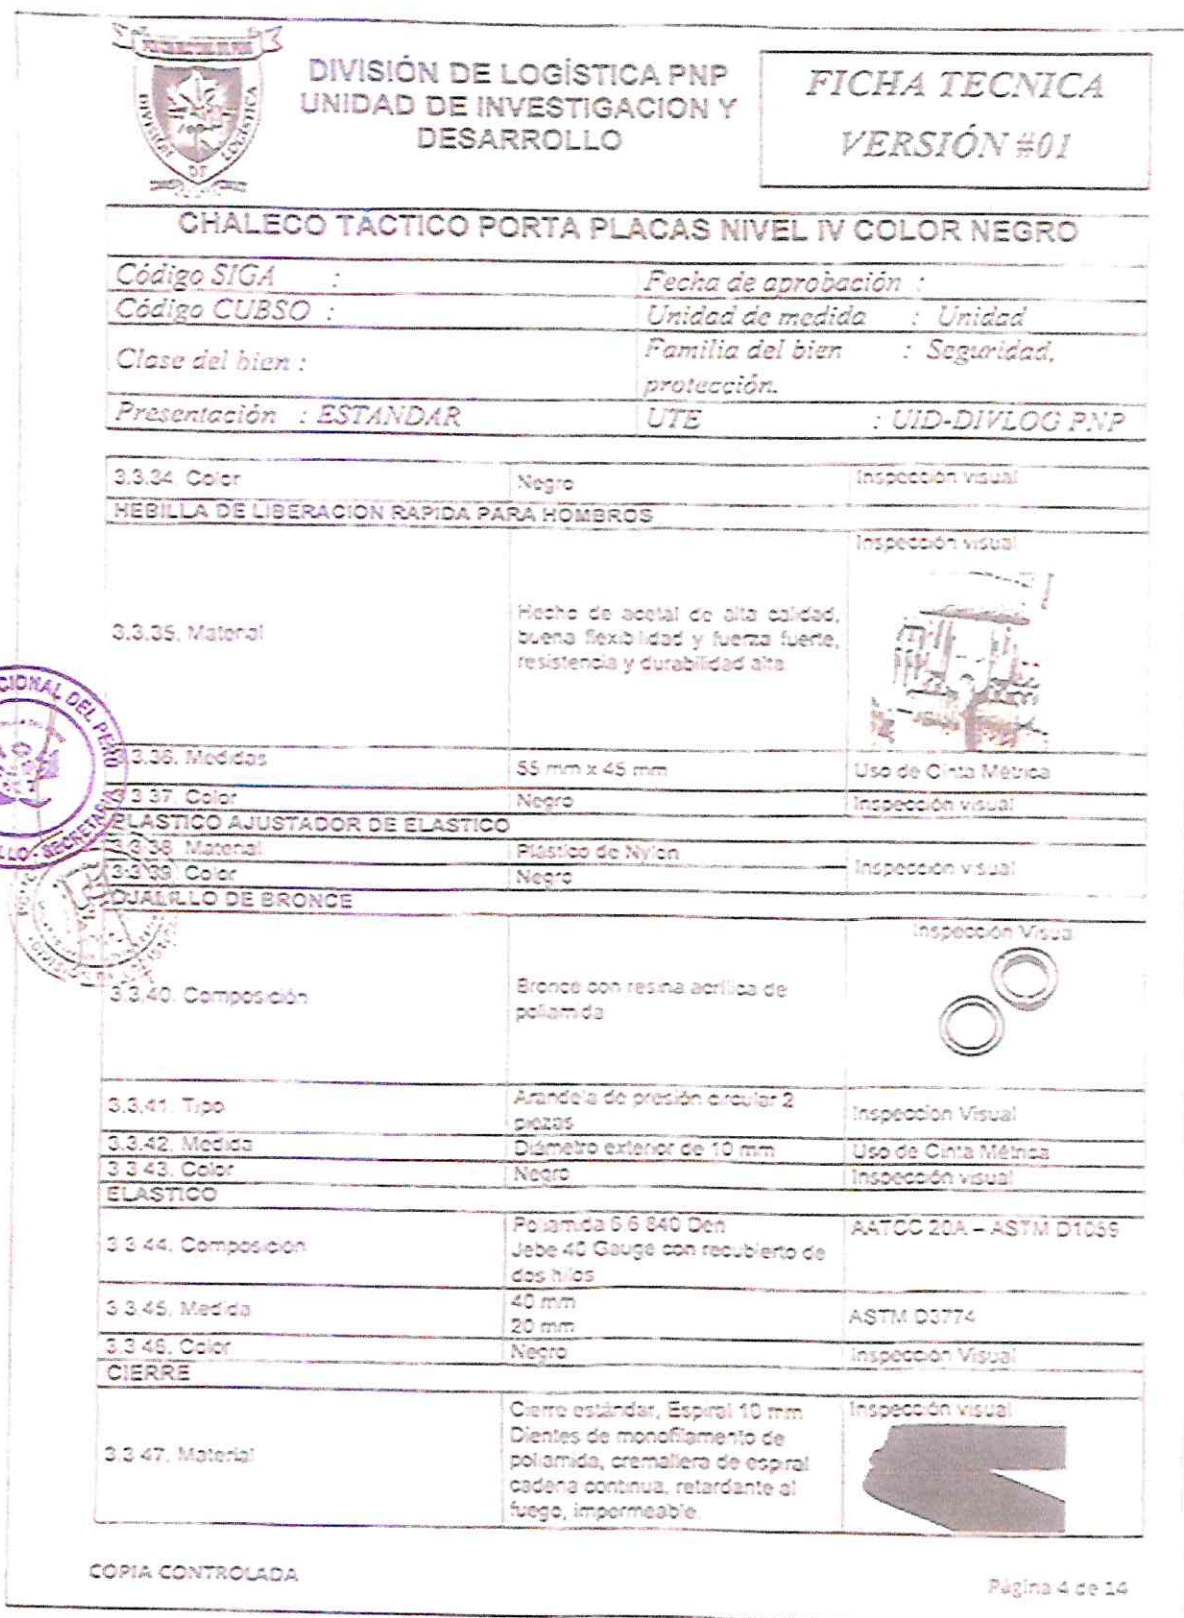 DIVISIÓN DE LOGÍSTICA PNP
UNIDAD DE INVESTIGACION Y
DESARROLLO
FICHA TECNICA
VERSIÓN #01
DIVISIÓN DE LOGÍSTICA
CHALECO TACTICO PORTA PLACAS NIVEL IV COLOR NEGRO
Código SIGA :
Fecha de aprobación :
Código CUBSO :
Unidad de medida : Unidad
Clase del bien :
Familia del bien : Seguridad,
protección.
Presentación : ESTANDAR
UTE : UID-DIVLOG PNP
3.3.34. Color
Negro
Inspección visual
HEBILLA DE LIBERACION RAPIDA PARA HOMBROS
3.3.35. Material
Hecho de acetal de alta calidad,
buena flexibilidad y fuerza fuerte,
resistencia y durabilidad alta
Inspección visual
3.3.36. Medidas
55 mm x 45 mm
Uso de Cinta Métrica
3.3.37. Color
Negro
Inspección visual
PLASTICO AJUSTADOR DE ELASTICO
3.3.38. Material
Plástico de Nylon
Inspección visual
3.3.39. Color
Negro
OJALILLO DE BRONCE
3.3.40. Composición
Bronce con resina acrílica de
poliamida
Inspección Visual
3.3.41. Tipo
Arandela de presión circular 2
piezas
Inspección Visual
3.3.42. Medida
Diámetro exterior de 10 mm
Uso de Cinta Métrica
3.3.43. Color
Negro
Inspección visual
ELASTICO
3.3.44. Composición
Poliamida 6.6 840 Den
Jebe 40 Gauge con recubierto de
dos hilos
AATCC 20A – ASTM D1059
3.3.45. Medida
40 mm
20 mm
ASTM D3774
3.3.46. Color
Negro
Inspección Visual
CIERRE
3.3.47. Material
Cierre estándar, Espiral 10 mm
Dientes de monofilamento de
poliamida, cremallera de espiral
cadena continua, retardante al
fuego, impermeable.
Inspección visual
COPIA CONTROLADA
Página 4 de 14